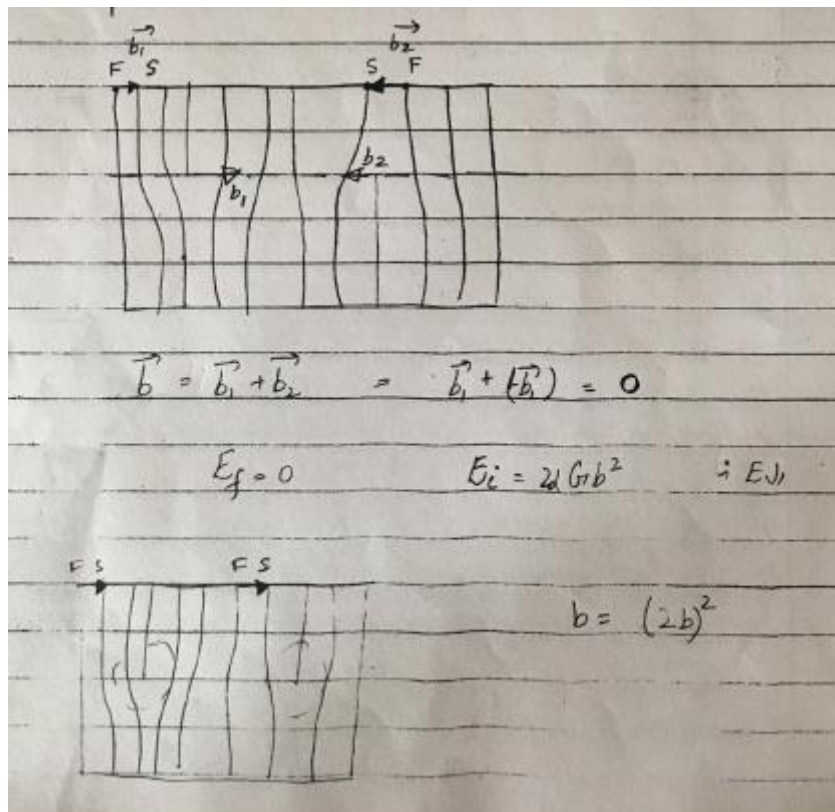 b₁⃗ b₂⃗
F S S F
b₁ b₂
b⃗ = b₁⃗ + b₂⃗ = b₁⃗ + (-b₁⃗) = 0
E_f = 0 E_i = 2αGb² ∴ E↓
F S F S
b = (2b)²